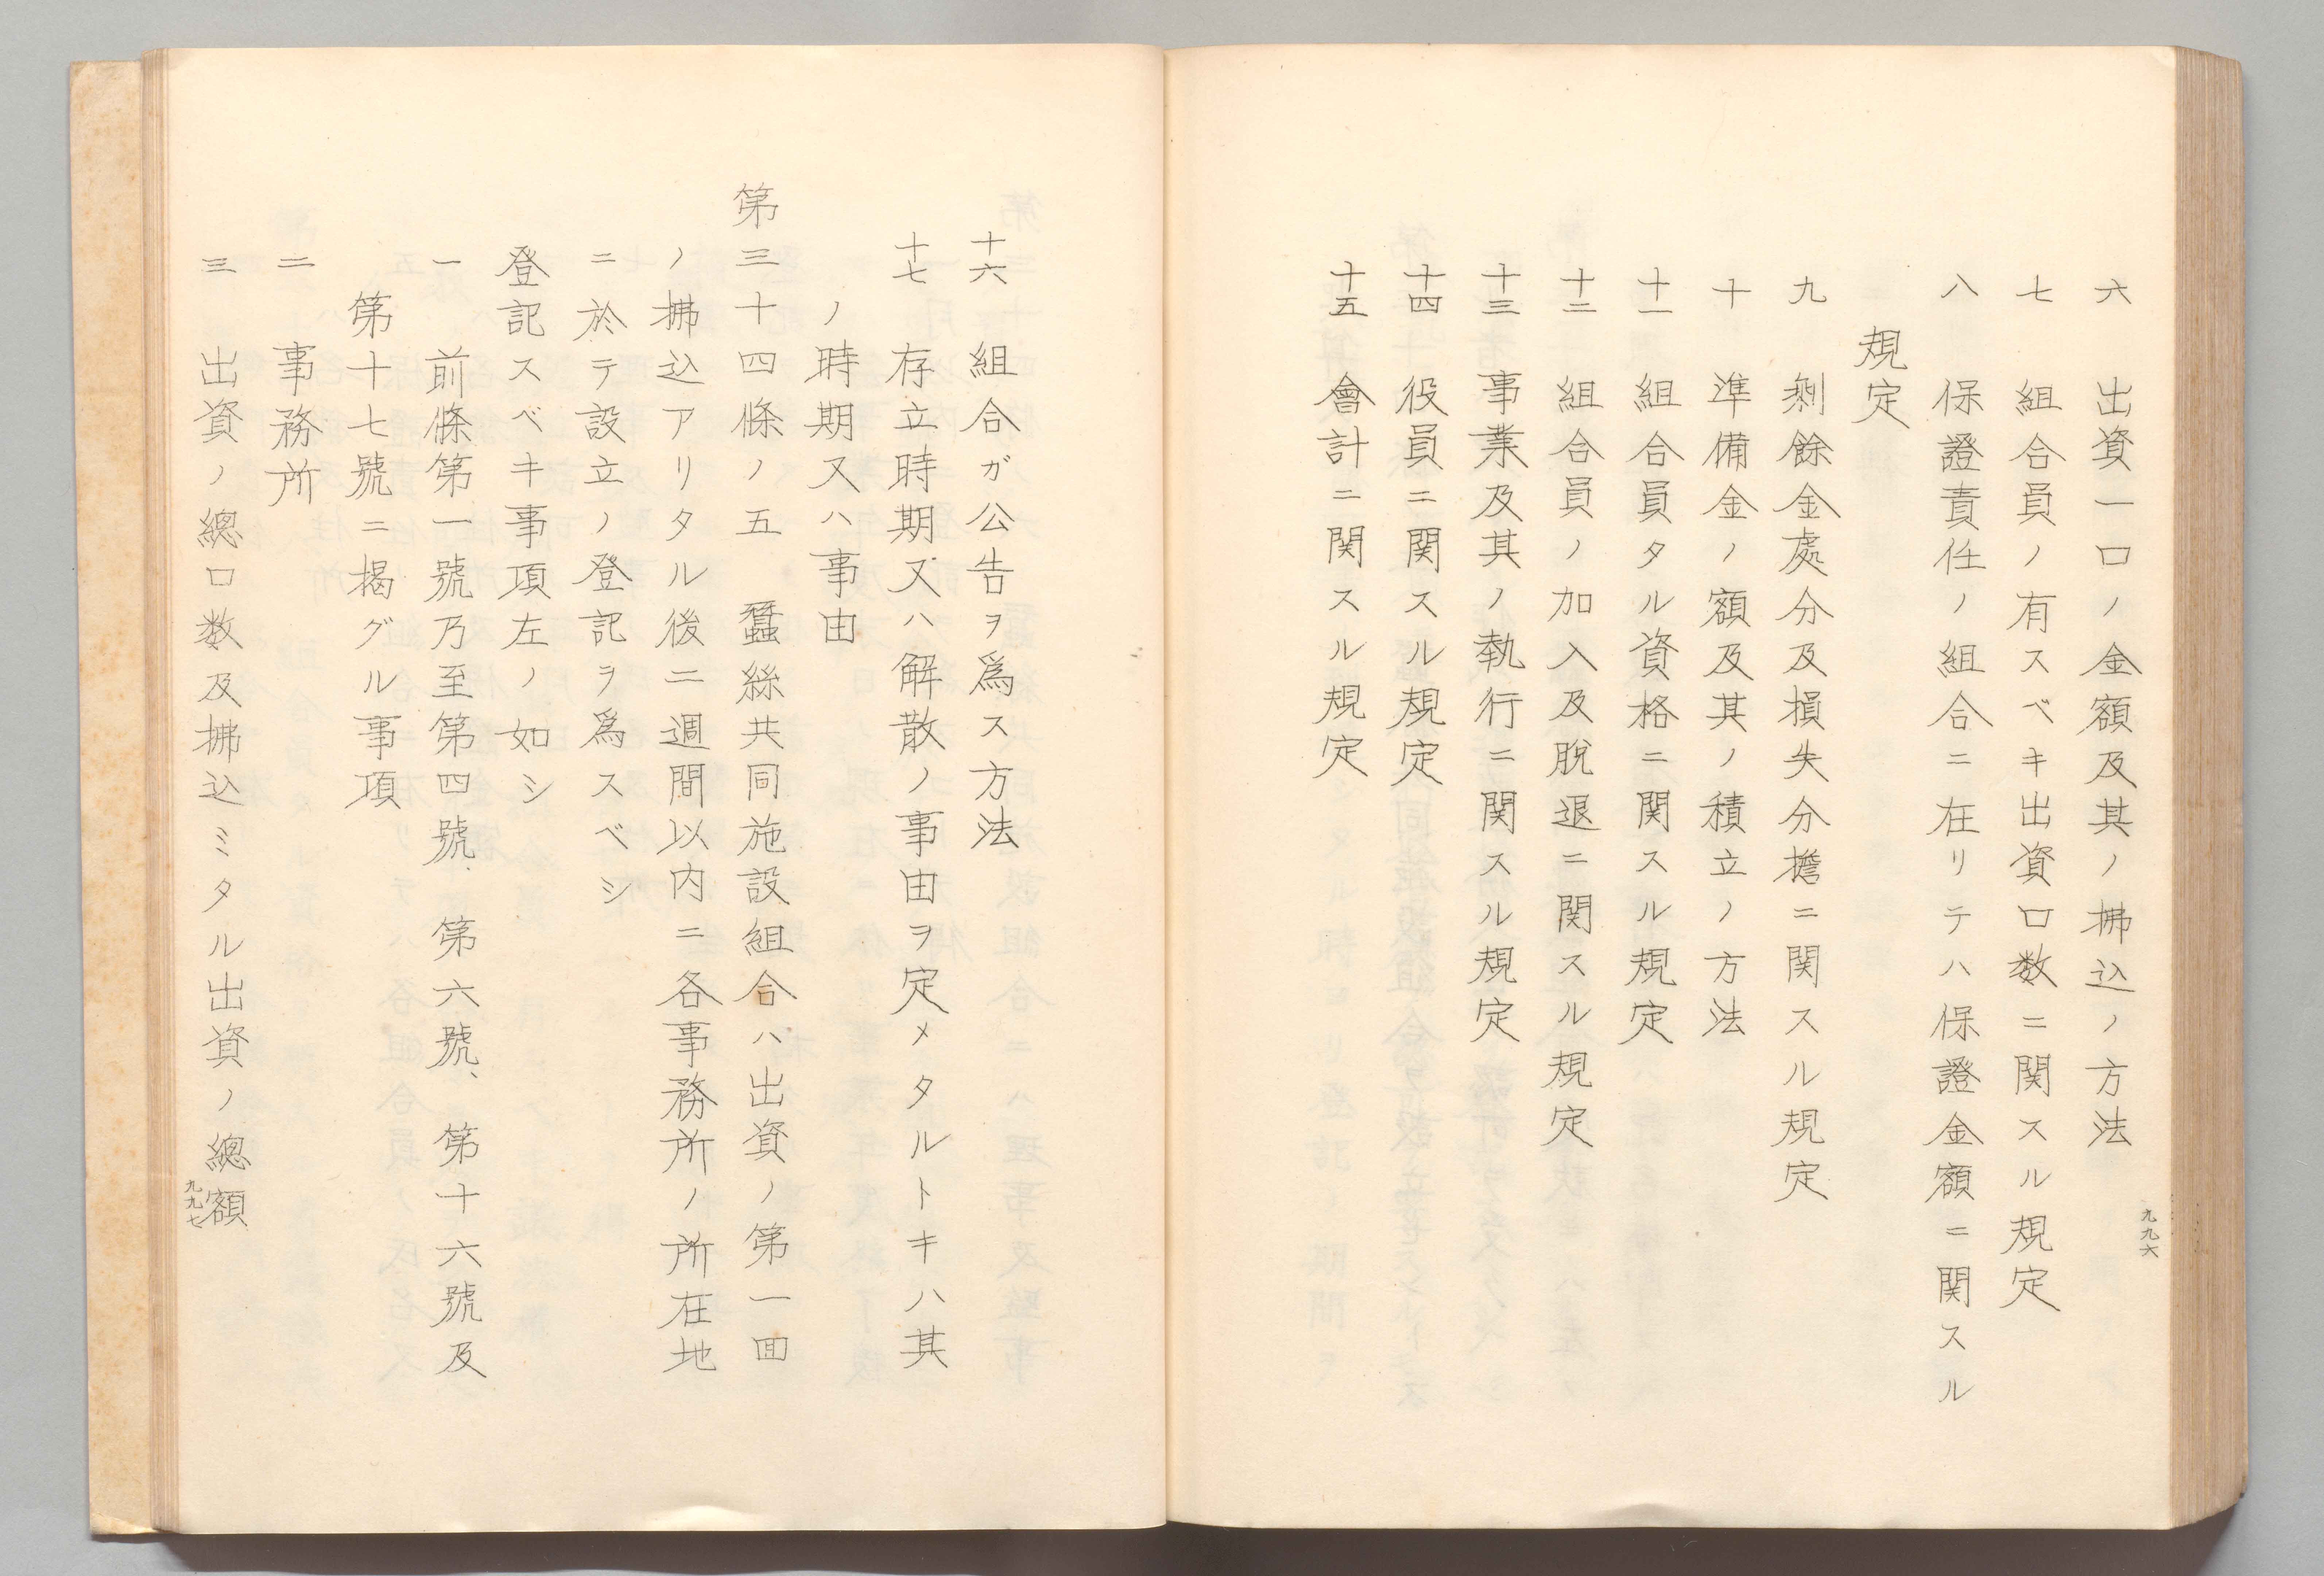 六　出資一口ノ金額及其ノ拂込ノ方法
七　組合員ノ有スベキ出資口数ニ関スル規定
八　保證責任ノ組合ニ在リテハ保證金額ニ関スル
規定
九　剰餘金處分及損失分擔ニ関スル規定
十　準備金ノ額及其ノ積立ノ方法
十一　組合員タル資格ニ関スル規定
十二　組合員ノ加入及脱退ニ関スル規定
十三　事業及其ノ執行ニ関スル規定
十四　役員ニ関スル規定
十五　會計ニ関スル規定
九九六
十六　組合ガ公告ヲ爲ス方法
十七　存立時期又ハ解散ノ事由ヲ定メタルトキハ其
ノ時期又ハ事由
第三十四條ノ五　蠶絲共同施設組合ハ出資ノ第一回
ノ拂込アリタル後二週間以内ニ各事務所ノ所在地
ニ於テ設立ノ登記ヲ爲スベシ
登記スベキ事項左ノ如シ
一　前條第一號乃至第四號、第六號、第十六號及
第十七號ニ掲グル事項
二　事務所
三　出資ノ總口数及拂込ミタル出資ノ總額
九九七